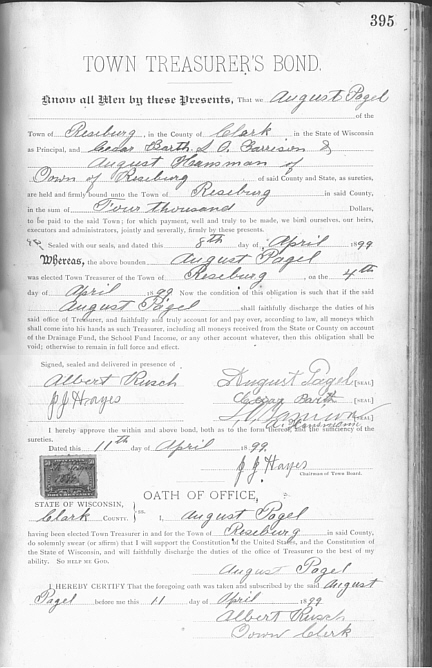 395
TOWN TREASURER'S BOND.
Know all Men by these Presents, That we August Pagel
of the
Town of Reseburg, in the County of Clark in the State of Wisconsin
as Principal, and Cedar Barth, S. O. Garrison &
August Hansman of
Town of Reseburg of said County and State, as sureties,
are held and firmly bound unto the Town of Reseburg in said County,
in the sum of Four thousand Dollars,
to be paid to the said Town; for which payment, well and truly to be made, we bind ourselves, our heirs,
executors and administrators, jointly and severally, firmly by these presents.
Sealed with our seals, and dated this 8th day of April 1899
Whereas, the above bounden August Pagel
was elected Town Treasurer of the Town of Reseburg, on the 4th
day of April 1899 Now the condition of this obligation is such that if the said
August Pagel shall faithfully discharge the duties of his
said office of Treasurer, and faithfully and truly account for and pay over, according to law, all moneys which
shall come into his hands as such Treasurer, including all moneys received from the State or County on account
of the Drainage Fund, the School Fund Income, or any other account whatever, then this obligation shall be
void; otherwise to remain in full force and effect.
Signed, sealed and delivered in presence of
Albert Rusch August Pagel [SEAL]
J J Hayes Barth [SEAL]
[SEAL]
A. Hansmann
I hereby approve the within and above bond, both as to the form thereof, and the sufficiency of the
sureties.
Dated this 11th day of April 1899.
J J Hayes
Chairman of Town Board.
OATH OF OFFICE,
STATE OF WISCONSIN, ss.
Clark COUNTY. I, August Pagel
having been elected Town Treasurer in and for the Town of Reseburg in said County,
do solemnly swear (or affirm) that I will support the Constitution of the United States, and the Constitution of
the State of Wisconsin, and will faithfully discharge the duties of the office of Treasurer to the best of my
ability. SO HELP ME GOD.
August Pagel
I HEREBY CERTIFY That the foregoing oath was taken and subscribed by the said August
Pagel before me this 11 day of April 1899
Albert Rusch
Town Clerk